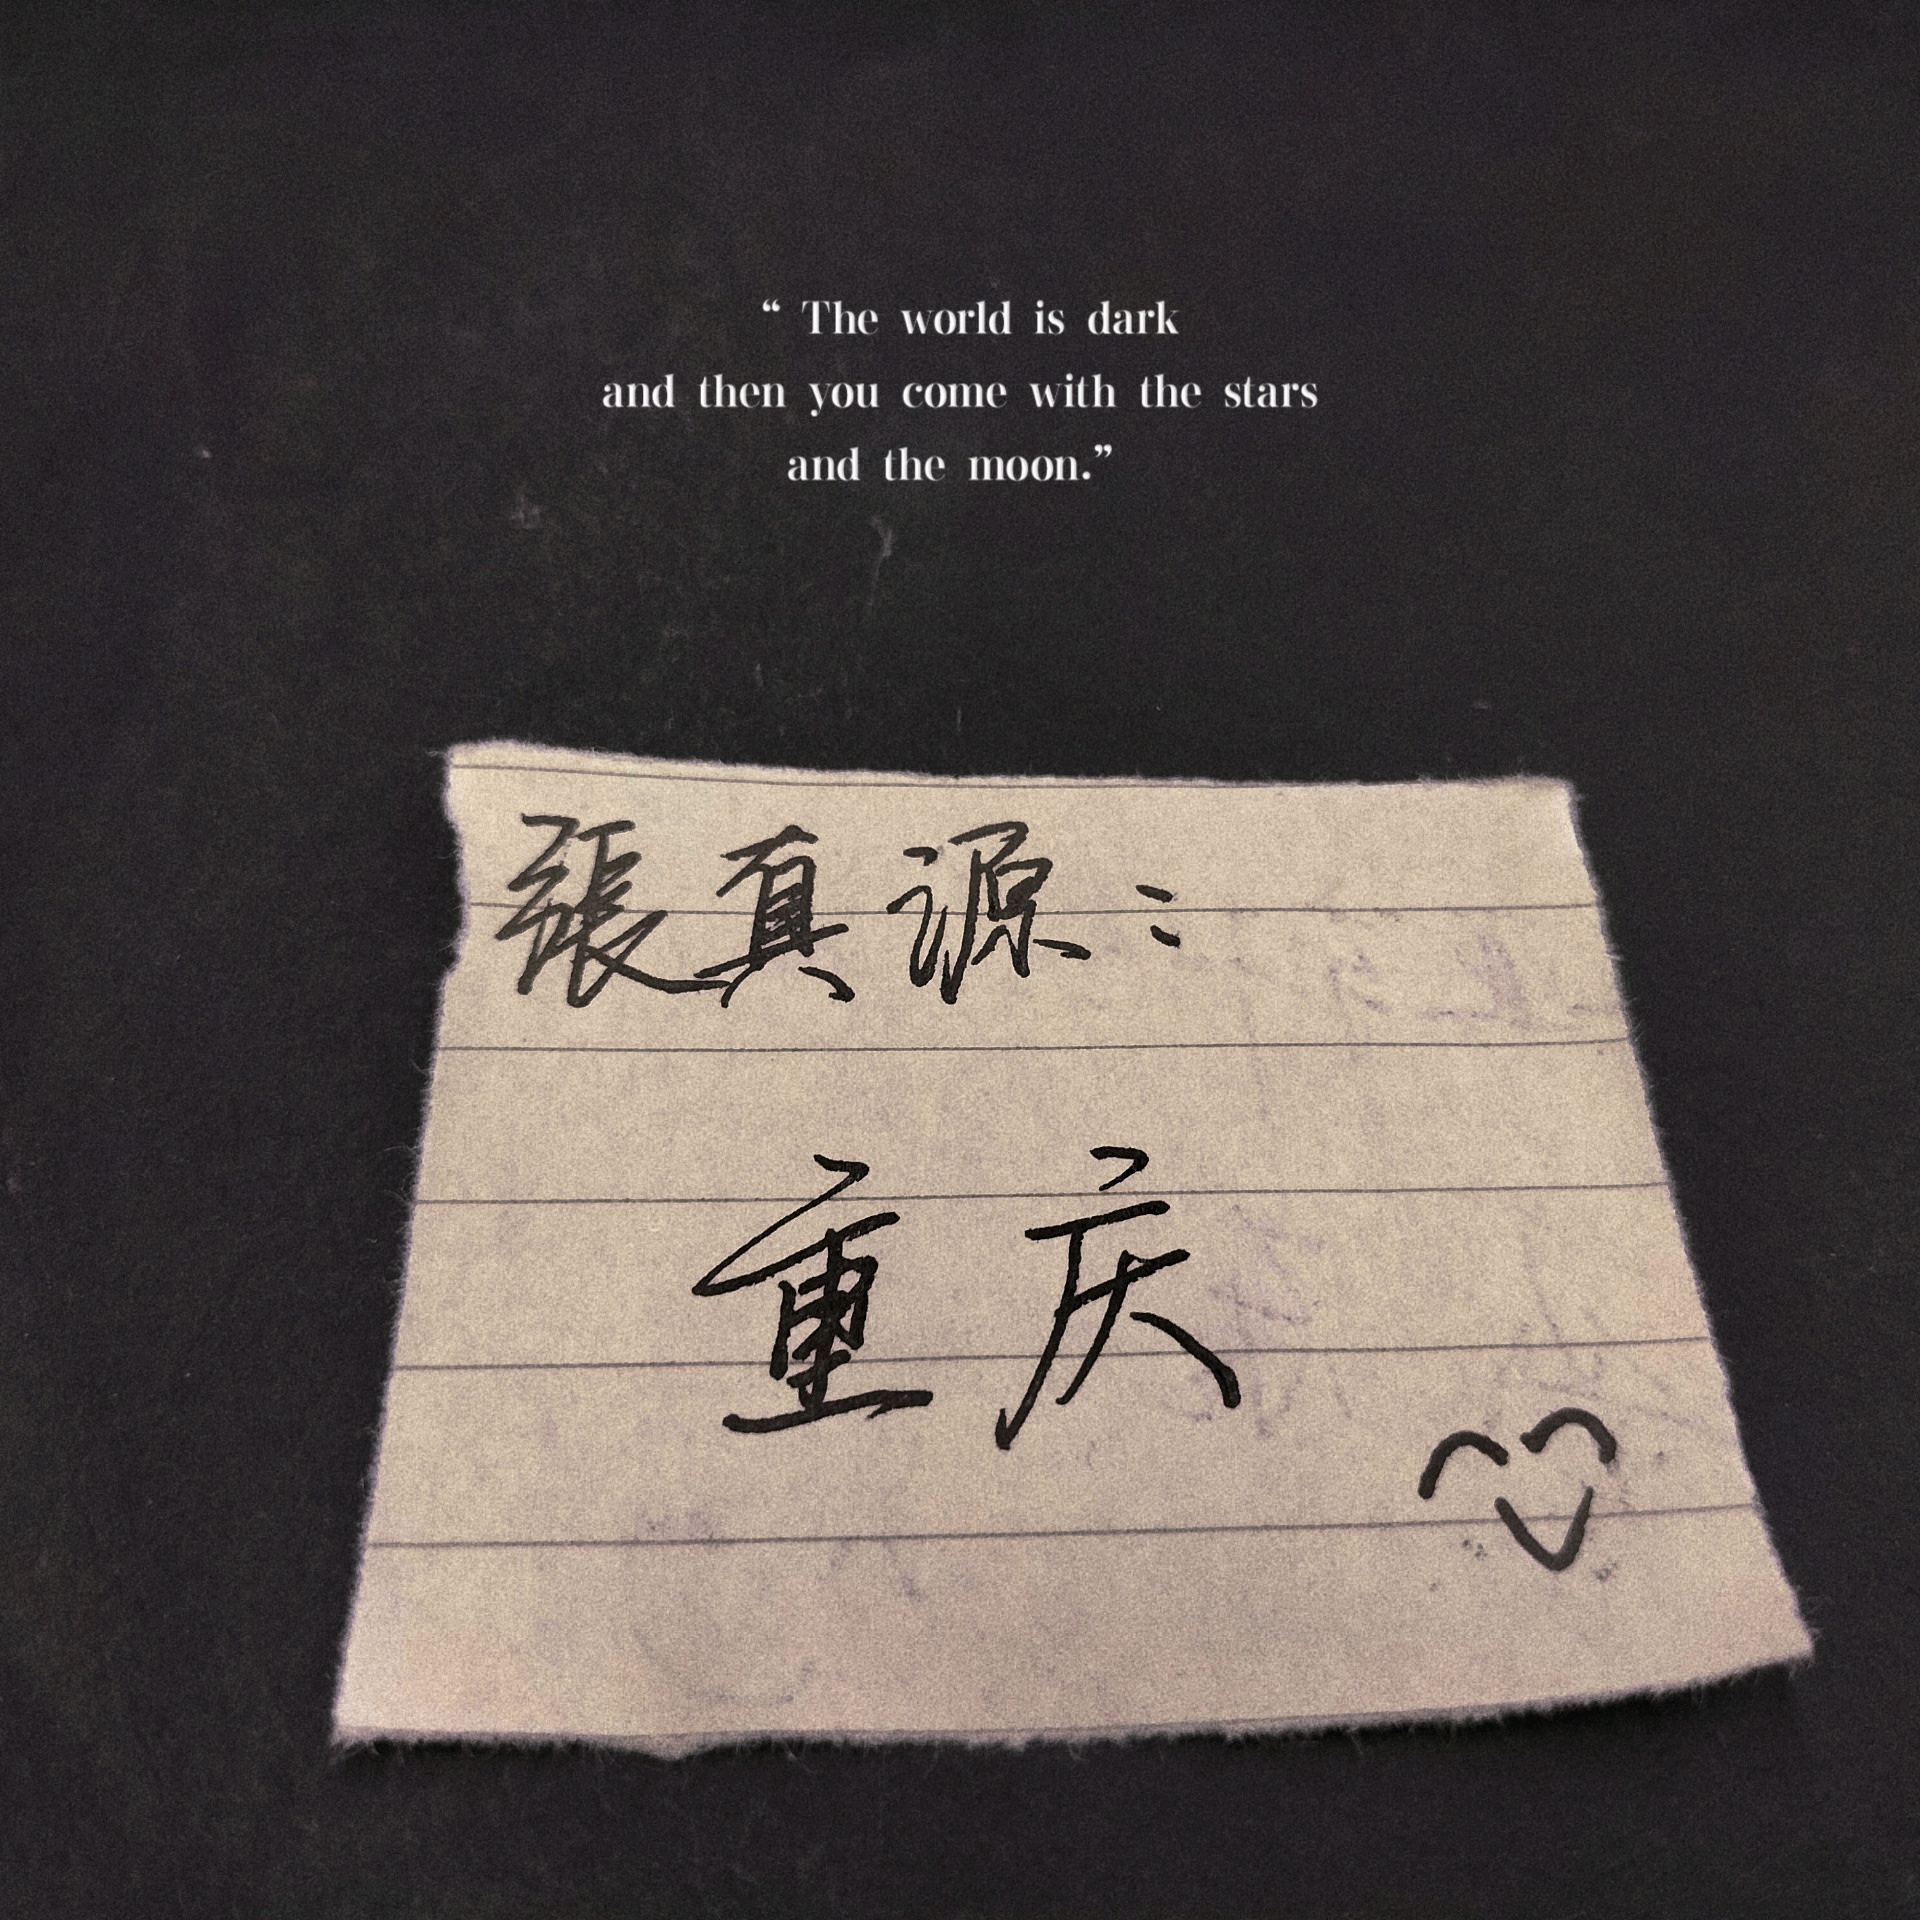 “ The world is dark
and then you come with the stars
and the moon.”
張真源：
重庆